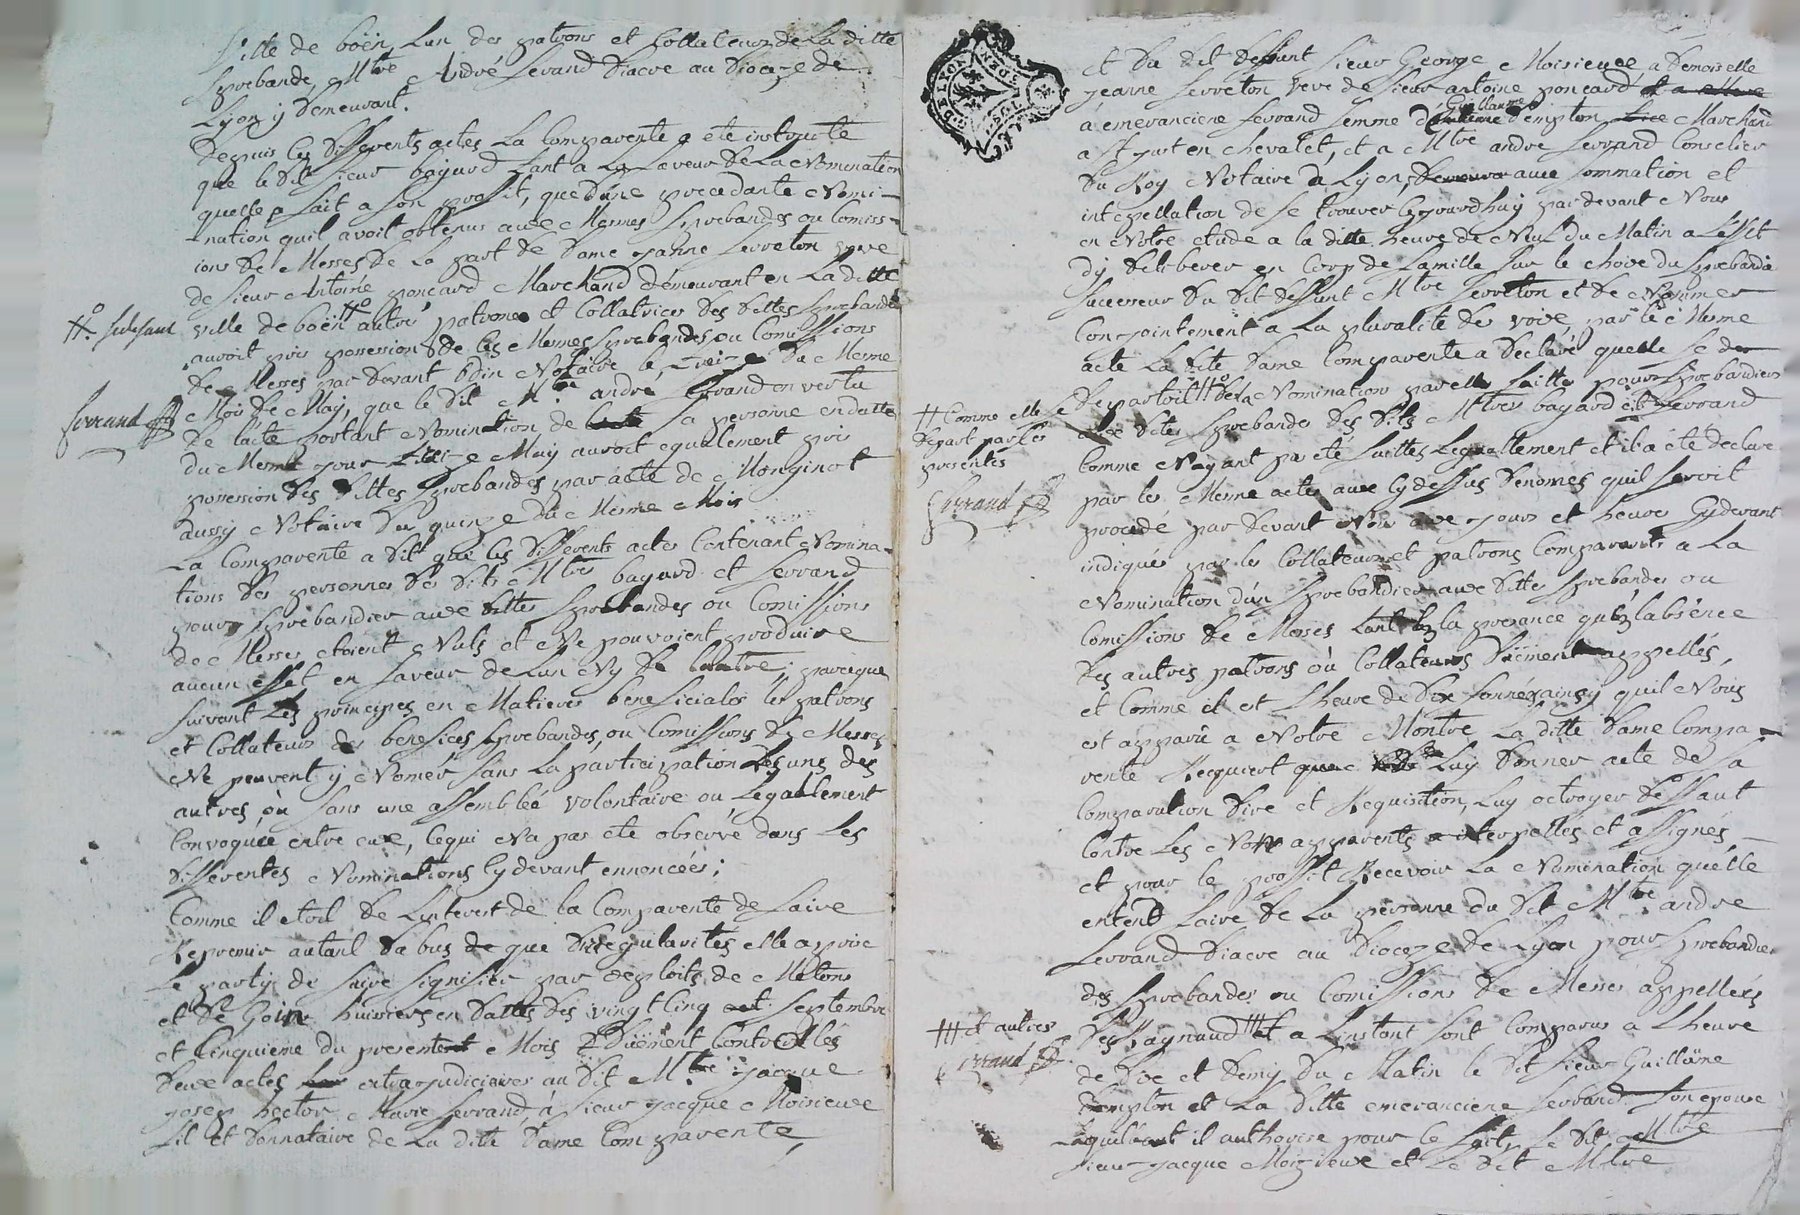 ville de boën Lun des patrons et Collateurs de La ditte
prebande, Mtre André ferrand Diacre au Dioceze de
Lyon y demeurant.
Depuis Ces differents actes La Comparente a été instruitte
que le dit sieur bayard tant a La faveur de La Nomination
quelle a fait a son proffit, que d'une precedante Nomi-
nation quil avoit obtenus aux Memes prebandes ou Comiss-
ions de Messes de La part de Dame jeanne ferreton veve
de sieur Antoine ponçard Marchand démeurant en La ditte
ville de boën autre patrone et Collatrice des dittes prebandes
auroit pris possession de Ces Memes prebandes ou Comissions
de Messes par devant Notaire le treize du Meme
Mois de May, que le dit Mtre andré ferrand en vertu
de l'acte portant Nomination de sa personne en datte
du Meme jour treize May auroit egallement pris
possession des dittes prebandes par acte de Monginot
aussy Notaire du quinze du Meme Mois
La Comparente a dit que Ces differents actes Contenant Nomina-
tions des personnes des dits Mtres bayard et ferrand
pour prebandier aux dittes prebandes ou Comissions
de Messes etoient Nuls et Ne pouvoient produire
aucun effet en faveur de Lun Ny de Lautre; parceque
suivant Les principes en Matieres beneficiales les patrons
et Collateurs des benefices prebandes, ou Comissions de Messes
Ne peuvent y Nomer sans La participation Les uns des
autres, où sans une assemblée volontaire ou Legallement
Convoquée entre eux, Cequi Na pas eté observé dans Les
differentes Nominations Cydevant ennoncées;
Comme il etoit de Linterest de la Comparente de faire
Reprimer autant d'abus de que dirregularités elle a pris
Le party de faire signifier par exploits de Meton
et de Goin huissiers en dattes des vingt Cinq septembre
et Cinquieme du present Mois Duëment Controllés
deux actes extrajudiciaires au dit Mtre jacque
joseph hector Marie ferrand à sieur jacque Moisieux
fil et donnataire de La dite dame Comparente,
# subsfaut
ferrand
et du dit deffunt sieur George Moisieux a demoiselle
jeanne ferreton veve de sieur antoine ponçard
à emeranciene ferrand femme de Guillaume d'empton Marchand
a St just en Chevalet, et a Mtre andre ferrand Conselier
du Roy Notaire a Lyon, avec sommation et
interpellation de se trouver Cejourdhuy pardevant Nous
en Notre etude a la ditte heure de Neuf du Matin a Leffet
dy deliberer en Corp de famille sur le choix du prebandié
successeur du dit deffunt Mtre ferreton et de Nommer
Conjointement a La pluralité des voix, par le Meme
acte La dite dame Comparente a declaré quelle se
departoit de La Nomination par elle faitte pour prebandiers
aux dites prebandes des dits Mtres bayard et ferrand
Comme Nayant pas eté faittes Legallement et il a eté declaré
par les Meme actes aux Cydessus denomés quil seroit
procedé par devant Nous aux jour et heure Cydevant
indiqués par les Collateurs et patrons Comparants a La
Nomination d'un prebandier aux dittes prebandes ou
Comissions de Messes tant en la presance qu'en labsence
des autres patrons où Collateurs duëment appellés,
et Comme il est Lheure de dix sonnés ainsy quil Nous
est apparu a Notre Montre La ditte dame Compa-
rente Requiert Luy donner acte de sa
Comparution dire et Requisition, Luy octroyer deffaut
Contre Les Non apparents interpellés et assignés
et pour le proffit Recevoir La Nomination quelle
entend faire de La personne du dit Mtre andre
ferrand diacre au Dioceze de Lyon pour prebandier
des prebandes ou Comissions de Messes appellés
des Raynaud et a Linstant sont Comparus a Lheure
de dix et demy du Matin le dit sieur Guillaume
d'empton et La ditte emeranciene ferrand son epouse
Laquelle il authorise pour le fait, le dit Mtre
sieur jacque Moizieux et Le dit Mtre
# Comme elle se
depart par Ces
presentes
ferrand
# et autres
ferrand